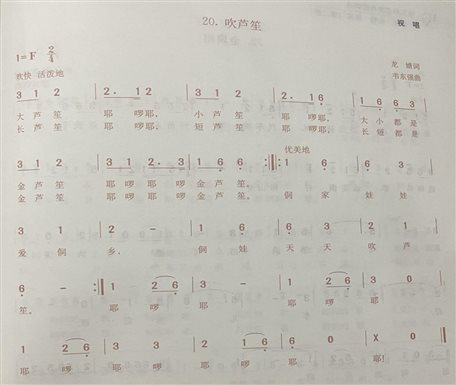 20. 吹芦笙
视 唱
1=F 2/4
龙 婧词
韦东强曲
欢快 活泼地
3 1 2 | 2. 1 2 | 3 1 2 | 2. 1 6 | 1 6 6 3 |
大 芦 笙 耶 啰耶, 小 芦 笙 耶 啰耶, 大 小 都 是
长 芦 笙 耶 啰耶, 短 芦 笙 耶 啰耶, 长 短 都 是
优美地
3 1 2 | 3 1 2. 3 | 1 6 6 :‖: 1 6 | 3 6 |
金 芦 笙 耶 啰耶 啰 金 芦 笙。 侗 家 娃 娃
金 芦 笙 耶 啰耶 啰 金 芦 笙。
3 1 | 2 - | 1 6 | 3 3 | 2 1 |
爱 侗 乡, 侗 娃 天 天 吹 芦
6 - :‖ 1 2 6 | 3 3 | 1 2 6 | 3 0 |
笙。 耶 啰 耶 耶 啰 耶
1 2 6 | 3 3 | 2 1 6 | X 0 ‖
耶 啰 耶 耶 啰 耶!